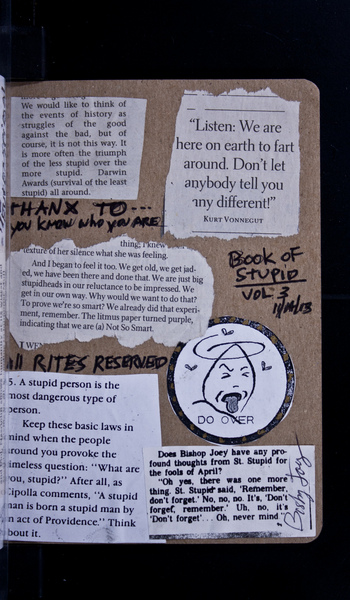 We would like to think of
the events of history as
struggles of the good
against the bad, but of
course, it is not this way. It
is more often the triumph
of the less stupid over the
more stupid. Darwin
Awards (survival of the least
stupid) all around.
"Listen: We are
here on earth to fart
around. Don't let
anybody tell you
any different!"
KURT VONNEGUT
THANX TO...
you know who you ARE
thing; I knew
texture of her silence what she was feeling.
And I began to feel it too. We get old, we get jad-
ed, we have been there and done that. We are just big
stupidheads in our reluctance to be impressed. We
get in our own way. Why would we want to do that?
To prove we're so smart? We already did that experi-
ment, remember. The litmus paper turned purple,
indicating that we are (a) Not So Smart.
BOOK OF
STUPID
VOL. 3
I WEN
All RITES RESERVED
DO OVER
5. A stupid person is the
most dangerous type of
person.
Keep these basic laws in
mind when the people
around you provoke the
timeless question: "What are
you, stupid?" After all, as
Cipolla comments, "A stupid
man is born a stupid man by
an act of Providence." Think
about it.
Does Bishop Joey have any pro-
found thoughts from St. Stupid for
the fools of April?
"Oh yes, there was one more
thing. St. Stupid said, 'Remember,
don't forget.' No, no, no. It's, 'Don't
forget, remember.' Uh, no, it's
'Don't forget'... Oh, never mind."
Bishop Joey